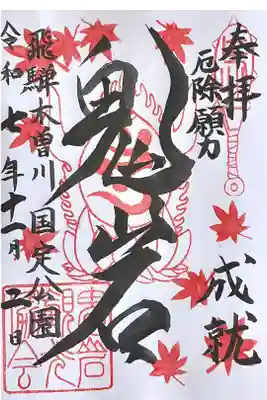 奉拝
厄除願力
成就
鬼岩
飛騨木曽川国定公園
令和七年十一月日